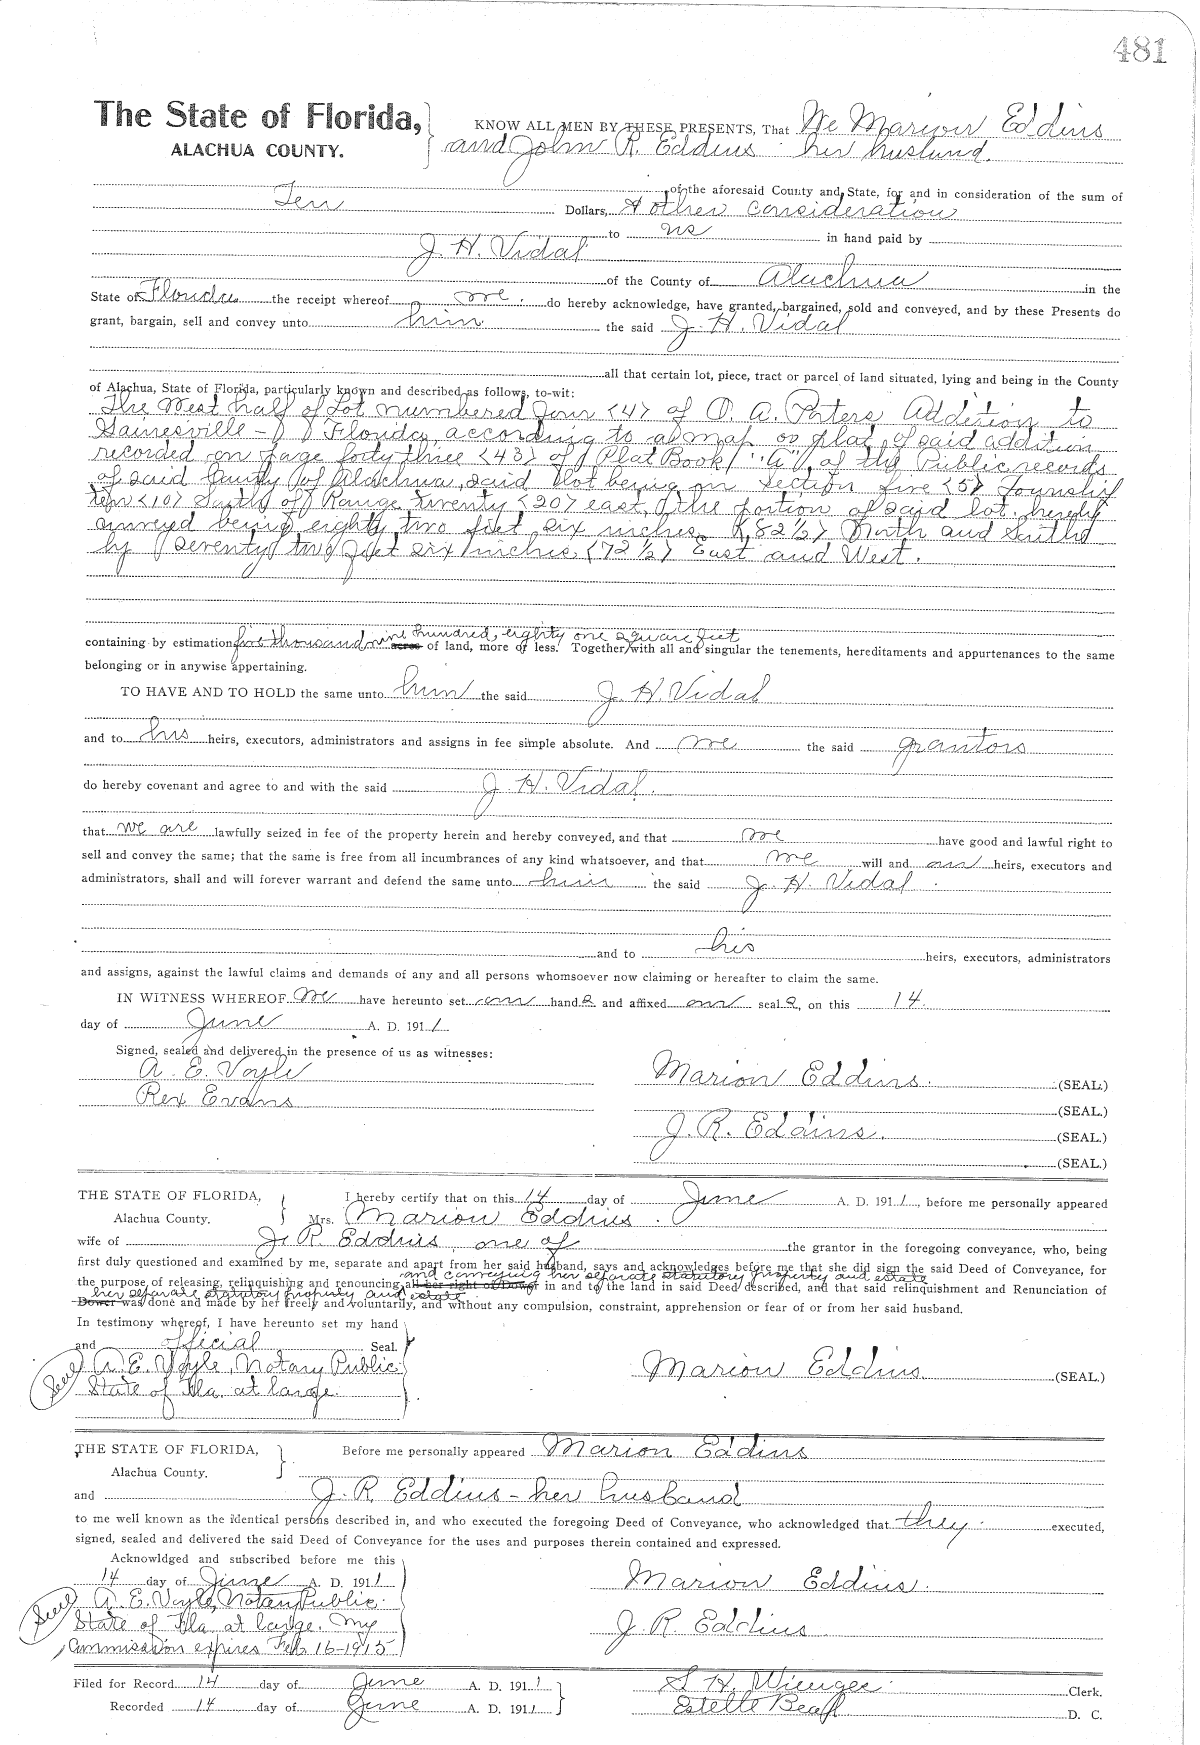 481
The State of Florida,
ALACHUA COUNTY.
KNOW ALL MEN BY THESE PRESENTS, That We Marion Eddins
and John R. Eddins her husband.
of the aforesaid County and State, for and in consideration of the sum of
Ten Dollars, & other consideration
to us in hand paid by
J. H. Vidal
of the County of Alachua in the
State of Florida the receipt whereof we do hereby acknowledge, have granted, bargained, sold and conveyed, and by these Presents do
grant, bargain, sell and convey unto him the said J. H. Vidal
all that certain lot, piece, tract or parcel of land situated, lying and being in the County
of Alachua, State of Florida, particularly known and described as follows, to-wit:
The West half of Lot numbered four <4> of O. A. Porters Addition to
Gainesville - Florida, according to a map or plat of said addition
recorded on page forty three <43> of Plat Book "A", of the Public records
of said County of Alachua, said lot being in Section five <5> Township
ten <10> South of Range twenty <20> east, the portion of said lot hereby
conveyed being eighty two feet six inches <82 1/2> North and South
by seventy two feet six inches <72 1/2> East and West.
containing by estimation five thousand nine hundred, eighty one square feet acres of land, more or less. Together with all and singular the tenements, hereditaments and appurtenances to the same
belonging or in anywise appertaining.
TO HAVE AND TO HOLD the same unto him the said J. H. Vidal
and to his heirs, executors, administrators and assigns in fee simple absolute. And we the said grantors
do hereby covenant and agree to and with the said J. H. Vidal.
that we are lawfully seized in fee of the property herein and hereby conveyed, and that we have good and lawful right to
sell and convey the same; that the same is free from all incumbrances of any kind whatsoever, and that we will and our heirs, executors and
administrators, shall and will forever warrant and defend the same unto him the said J. H. Vidal.
and to his heirs, executors, administrators
and assigns, against the lawful claims and demands of any and all persons whomsoever now claiming or hereafter to claim the same.
IN WITNESS WHEREOF We have hereunto set our hands and affixed our seals, on this 14.
day of June A. D. 1911
Signed, sealed and delivered in the presence of us as witnesses:
A. E. Voyle
Rex Evans
Marion Eddins. (SEAL.)
(SEAL.)
J. R. Eddins. (SEAL.)
(SEAL.)
THE STATE OF FLORIDA,
Alachua County.
I hereby certify that on this 14 day of June A. D. 1911, before me personally appeared
Mrs. Marion Eddins.
wife of J. R. Eddins, one of the grantor in the foregoing conveyance, who, being
first duly questioned and examined by me, separate and apart from her said husband, says and acknowledges before me that she did sign the said Deed of Conveyance, for
and conveying her separate statutory property and estate
the purpose of releasing, relinquishing and renouncing all her right of Dower in and to the land in said Deed described, and that said relinquishment and Renunciation of
her separate statutory property and estate
Dower was done and made by her freely and voluntarily, and without any compulsion, constraint, apprehension or fear of or from her said husband.
In testimony whereof, I have hereunto set my hand
and official Seal.
Seal A. E. Voyle, Notary Public
State of Fla. at large.
Marion Eddins (SEAL.)
THE STATE OF FLORIDA,
Alachua County.
Before me personally appeared Marion Eddins
and J. R. Eddins - her husband
to me well known as the identical persons described in, and who executed the foregoing Deed of Conveyance, who acknowledged that they executed,
signed, sealed and delivered the said Deed of Conveyance for the uses and purposes therein contained and expressed.
Acknowldged and subscribed before me this
14 day of June A. D. 1911
Seal A. E. Voyle, Notary Public
State of Fla. at large. My
Commission expires Feb. 16-1915
Marion Eddins.
J. R. Eddins.
Filed for Record 14 day of June A. D. 1911
Recorded 14 day of June A. D. 1911
S. H. Wienges Clerk.
Estelle D. C.